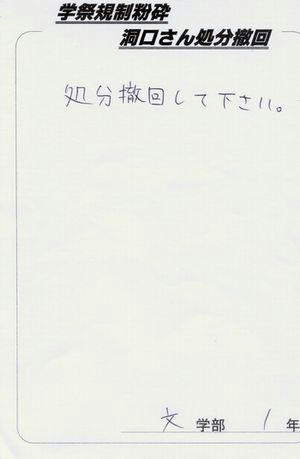 学祭規制粉砕
洞口さん処分撤回
処分撤回して下さい。
文 学部 1 年